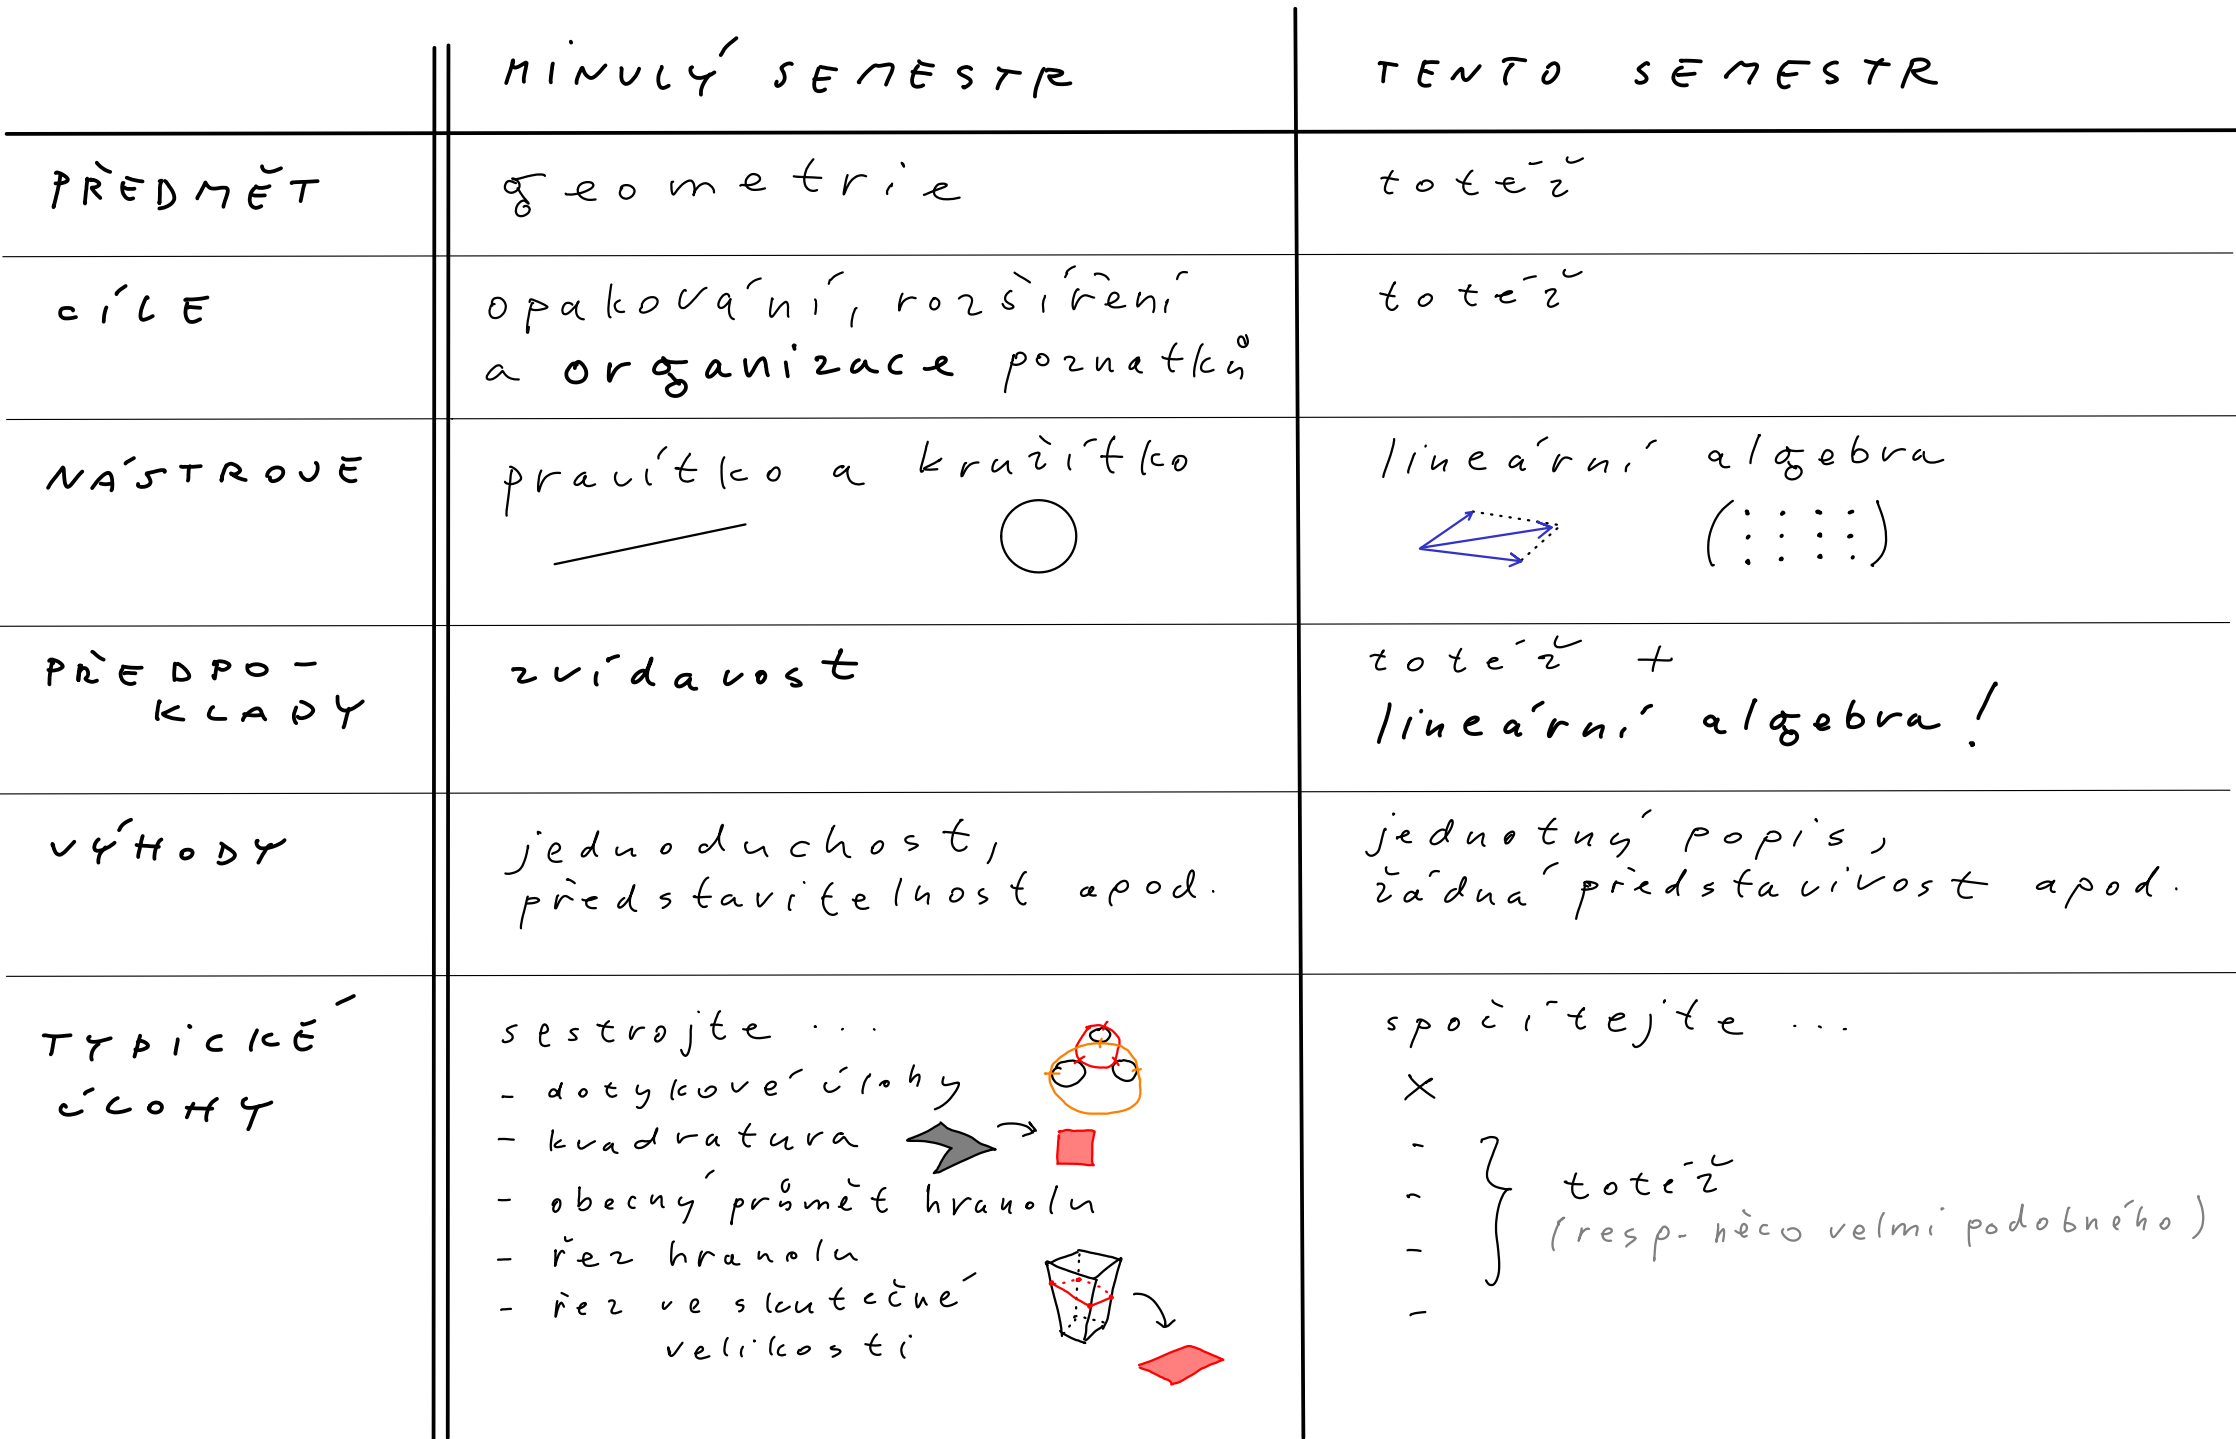 MINULÝ SEMESTR
TENTO SEMESTR
PŘEDMĚT
geometrie
totéž
CÍLE
opakování, rozšíření
a organizace poznatků
totéž
NÁSTROJE
pravítko a kružítko
lineární algebra
PŘEDPO-
KLADY
zvídavost
totéž +
lineární algebra!
VÝHODY
jednoduchost,
představitelnost apod.
jednotný popis,
žádná představivost apod.
TYPICKÉ
ÚLOHY
sestrojte ...
- dotykové úlohy
- kvadratura
- obecný průmět hranolu
- řez hranolu
- řez ve skutečné
velikosti
spočítejte ...
×
-
-
-
-
totéž
(resp. něco velmi podobného)